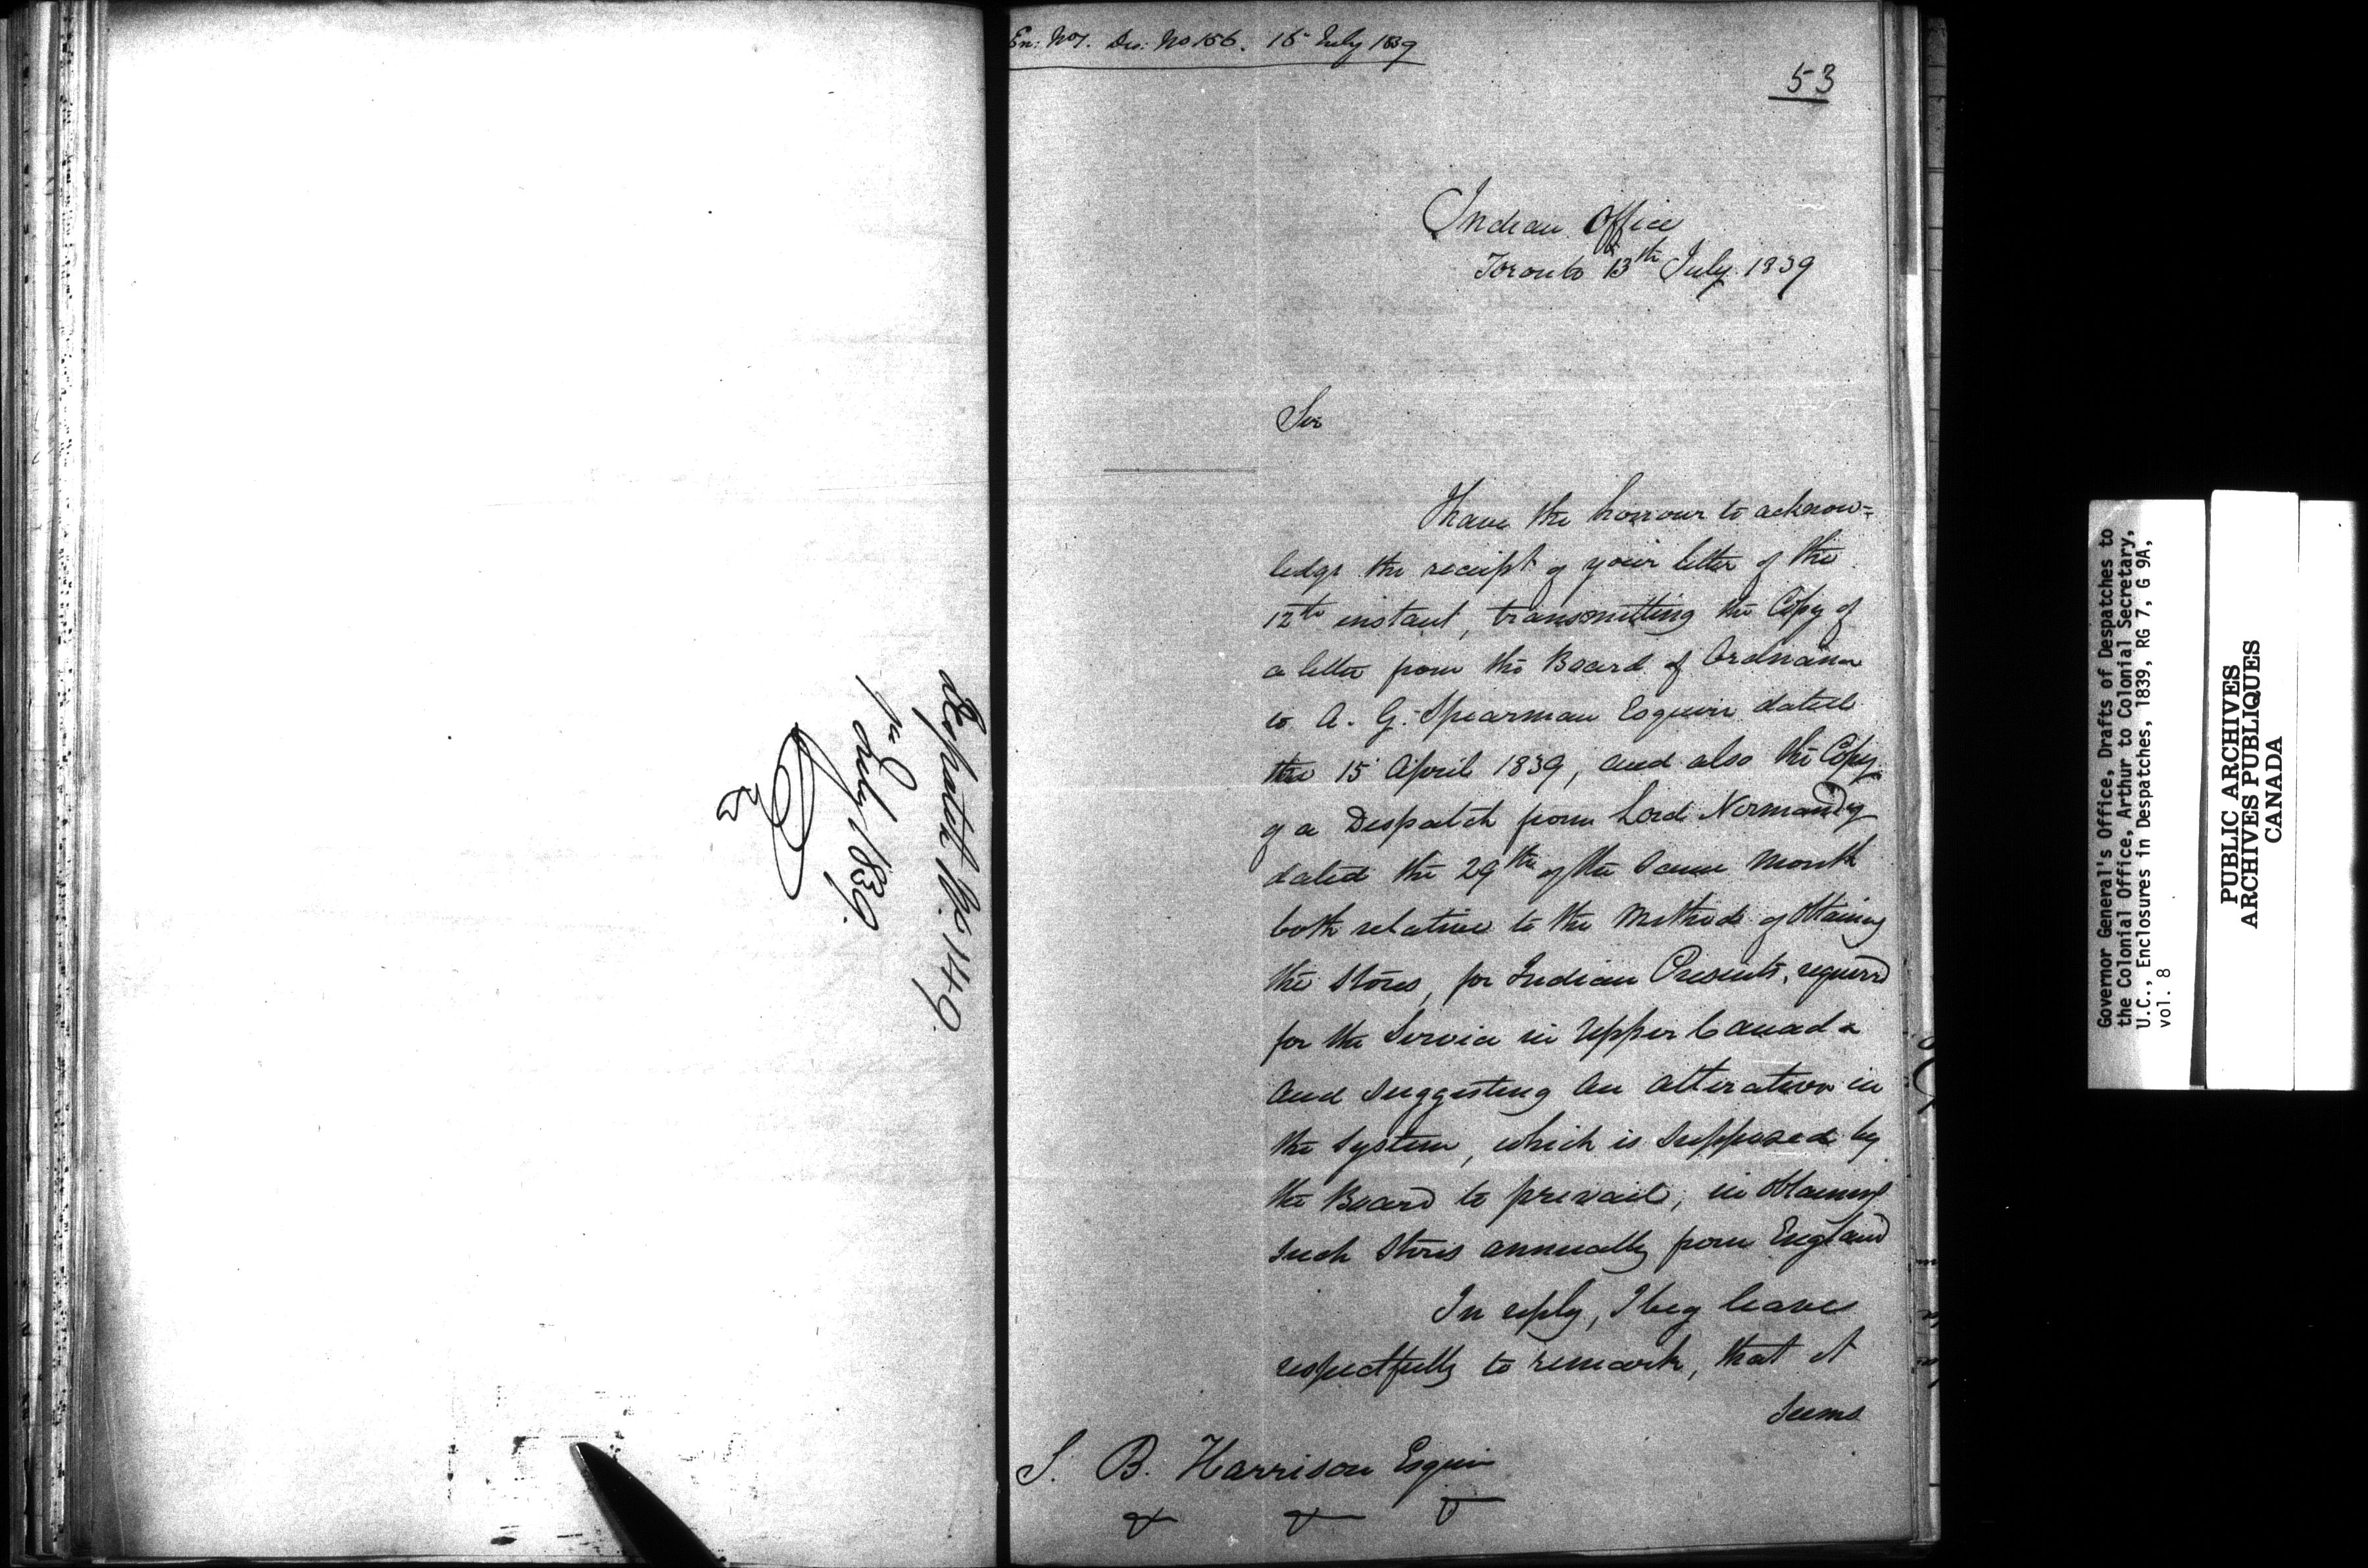 Despatch No 149.
July 1839.
En: No 1. Des: No 156. 16 July 1839
53
Indian Office
Toronto 13th July 1839
Sir
I have the honour to acknow=
ledge the receipt of your letter of the
12th instant, transmitting the Copy of
a letter from the Board of Ordnance
to A. G. Spearman Esquire dated
the 15 April 1839, and also the Copy
of a Despatch from Lord Normanby
dated the 29th of the same Month
both relative to the Method of Obtaining
the Stores, for Indian Presents, required
for the Service in Upper Canada
and suggesting an alteration in
the System, which is supposed by
the Board to prevail, in obtaining
such Stores annually from England
In reply, I beg leave
respectfully to remark, that it
seems
S. B. Harrison Esquire
Governor General's Office, Drafts of Despatches to
the Colonial Office, Arthur to Colonial Secretary,
U.C., Enclosures in Despatches, 1839, RG 7, G 9A,
vol. 8
PUBLIC ARCHIVES
ARCHIVES PUBLIQUES
CANADA